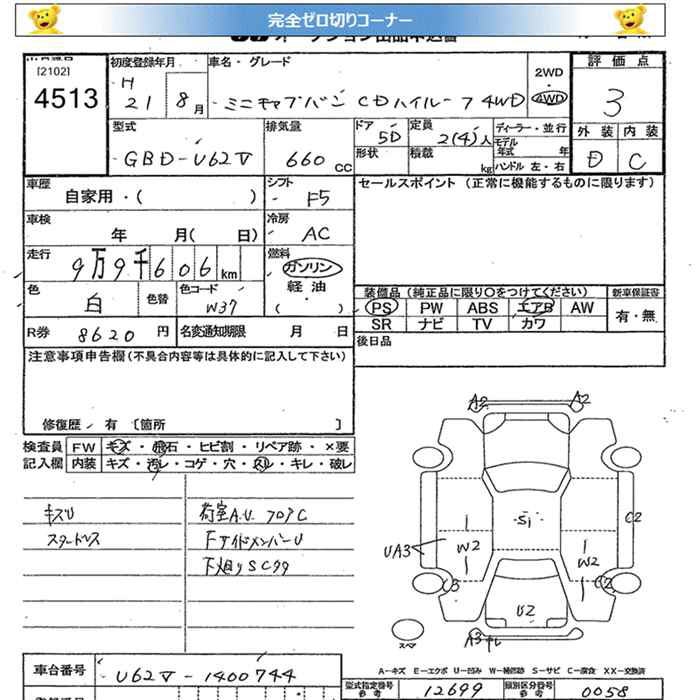 完全ゼロ切りコーナー
[2102]
4513
初度登録年月
H 21 8月
車名・グレード
ミニキャブバン CDハイルーフ 4WD
2WD
・
4WD
評価点
3
外装 内装
D C
型式
GBD-U62V
排気量
660 cc
ドア
5D
形状
定員
2(4)人
積載
kg
ディーラー・並行
モデル年式 年
ハンドル 左・右
車歴
自家用・( )
シフト
F5
セールスポイント (正常に機能するものに限ります)
車検
年 月( 日)
冷房
AC
走行
9万9千606km
燃料
ガソリン
軽油
( )
色
白
色替
色コード
W37
装備品 (純正品に限り○をつけてください)
新車保証書
PS PW ABS エアB AW
SR ナビ TV カワ
有・無
R券 8620円
名変通知期限 月 日
後日品
注意事項申告欄(不具合内容等は具体的に記入して下さい)
修復歴 有 [箇所 ]
検査員 FW キズ・飛石・ヒビ割・リペア跡・×要
記入欄 内装 キズ・汚レ・コゲ・穴・スレ・キレ・破レ
キズU
スタードレス
荷室A.U フロアC
FサイドメンバーU
下廻りSC99
A2
Si
W2
W2
UA3
C2
C3
C2
U2
A3
スマ
A-キズ E-エクボ U-凹み W-補修跡 S-サビ C-腐食 XX-交換済
車台番号
U62V-1400744
型式指定番号
参考
12699
類別区分番号
参考
0058